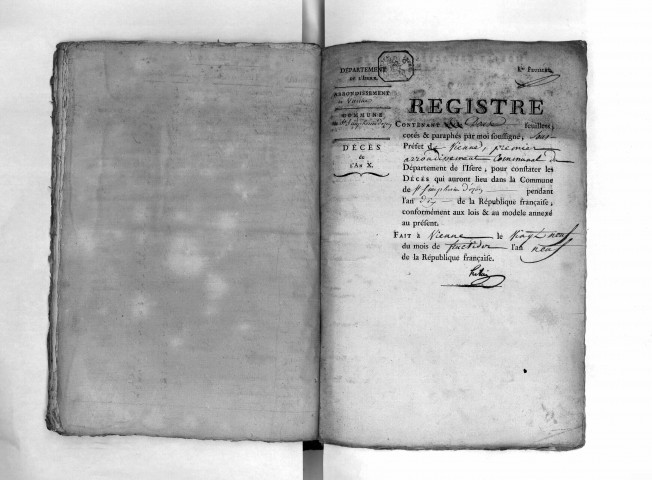 DÉPARTEMENT
DE L'ISERE.
ARRONDISSEMENT
de Vienne
COMMUNE
DÉCÈS
de
l'An X.
1er FEUILLET.
REGISTRE
CONTENANT Douze feuillets,
cotés & paraphés par moi soussigné, Sous-
Préfet de Vienne, premier
arrondissement Communal du
Département de l'Isere, pour constater les
DÉCÈS qui auront lieu dans la Commune
de St Simphorien d'Ozon pendant
l'an dix de la République française,
conformément aux lois & au modele annexé
au présent.
FAIT à Vienne le vingt neuf
du mois de fructidor l'an neuf
de la République française.